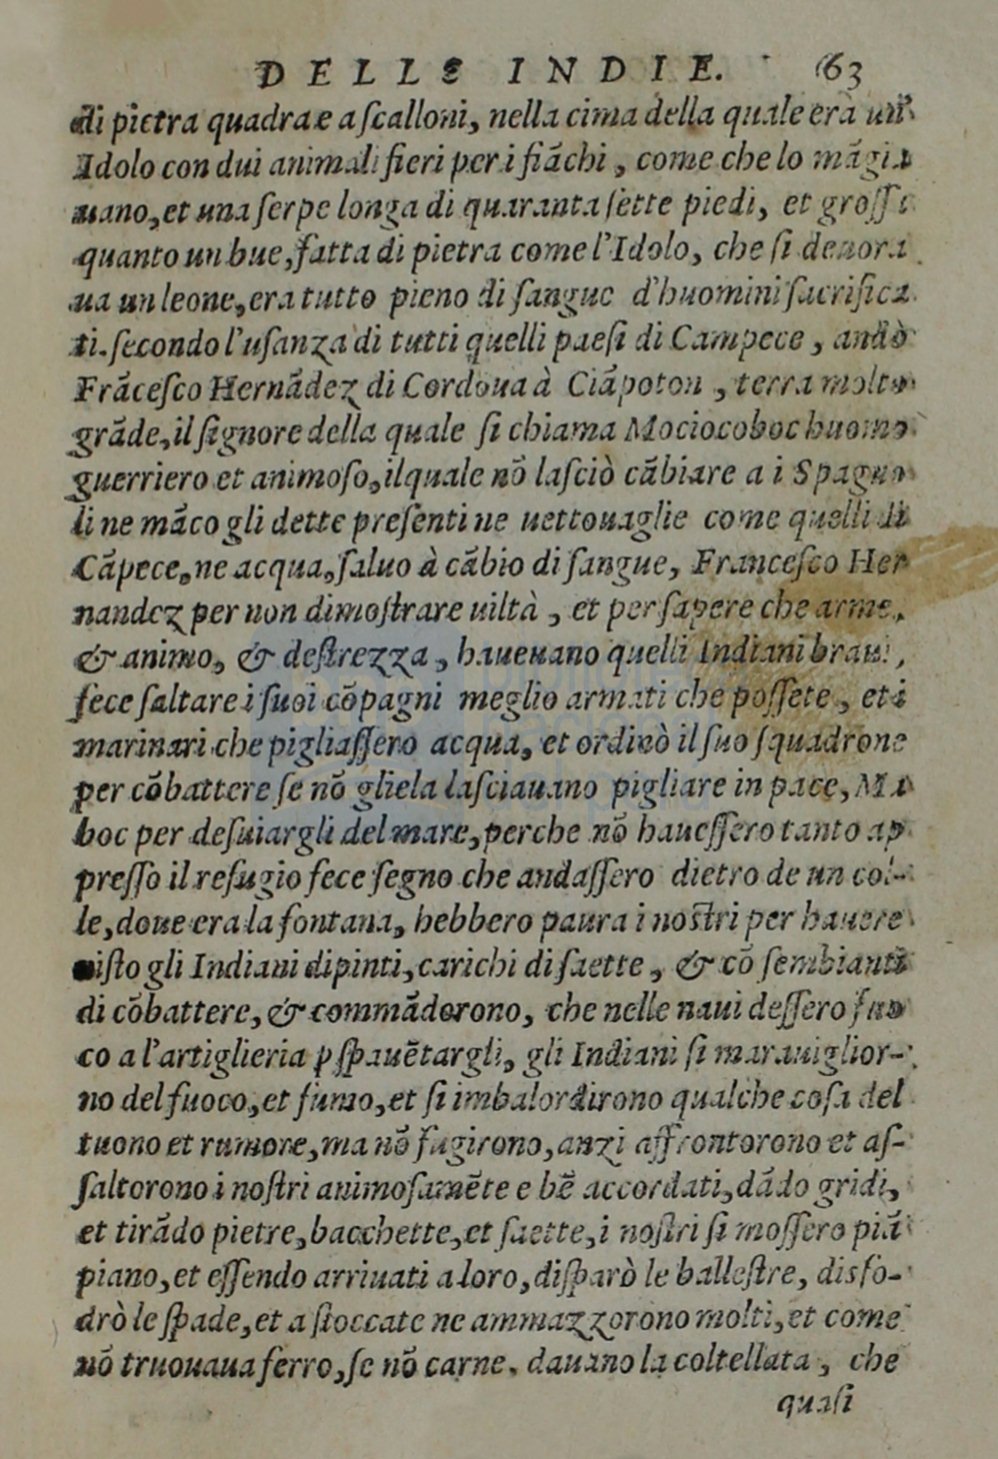 DELLE INDIE. 63
di pietra quadra e a ſcalloni, nella cima della quale era un
Idolo con dui animali fieri per i fiãchi, come che lo mãgia
uano, et una ſerpe longa di quaranta ſette piedi, et groſſa
quanto un bue, fatta di pietra come l'Idolo, che ſi deuora
ua un leone, era tutto pieno di ſangue d'huomini ſacrifica
ti. ſecondo l'uſanza di tutti quelli paeſi di Campece, andò
Frãceſco Hernãdez di Cordoua à Ciãpoton, terra molto
grãde, il ſignore della quale ſi chiama Mociocoboc huomo
guerriero et animoſo, ilquale nõ laſciò cãbiare a i Spagno
li ne mãco gli dette preſenti ne uettouaglie come quelli di
Cãpece, ne acqua, ſaluo à cãbio di ſangue, Franceſco Her
nandez per non dimoſtrare uiltà, et per ſapere che arme,
& animo, & deſtrezza, haueuano quelli Indiani braui,
fece ſaltare i ſuoi cõpagni meglio armati che poſſete, et i
marinari che pigliaſſero acqua, et ordinò il ſuo ſquadrone
per cõbattere ſe nõ gliela laſciauano pigliare in pace, Ma
boc per deſuiargli del mare, perche nõ haueſſero tanto ap
preſſo il refugio fece ſegno che andaſſero dietro de un col-
le, doue era la fontana, hebbero paura i noſtri per hauere
uiſto gli Indiani dipinti, carichi di ſaette, & cõ ſembianti
di cõbattere, & commãdorono, che nelle naui deſſero fuo
co a l'artiglieria p ſpauẽtargli, gli Indiani ſi marauiglior-
no del fuoco, et fumo, et ſi imbalordirono qualche coſa del
tuono et rumore, ma nõ fugirono, anzi affrontorono et aſ-
ſaltorono i noſtri animoſamẽte e bẽ accordati, dãdo gridi,
et tirãdo pietre, bacchette, et ſaette, i noſtri ſi moſſero piã
piano, et eſſendo arriuati a loro, diſparò le balleſtre, disfo-
drò le ſpade, et a ſtoccate ne ammazzorono molti, et come
nõ truouaua ferro, ſe nõ carne. dauano la coltellata, che
quaſi